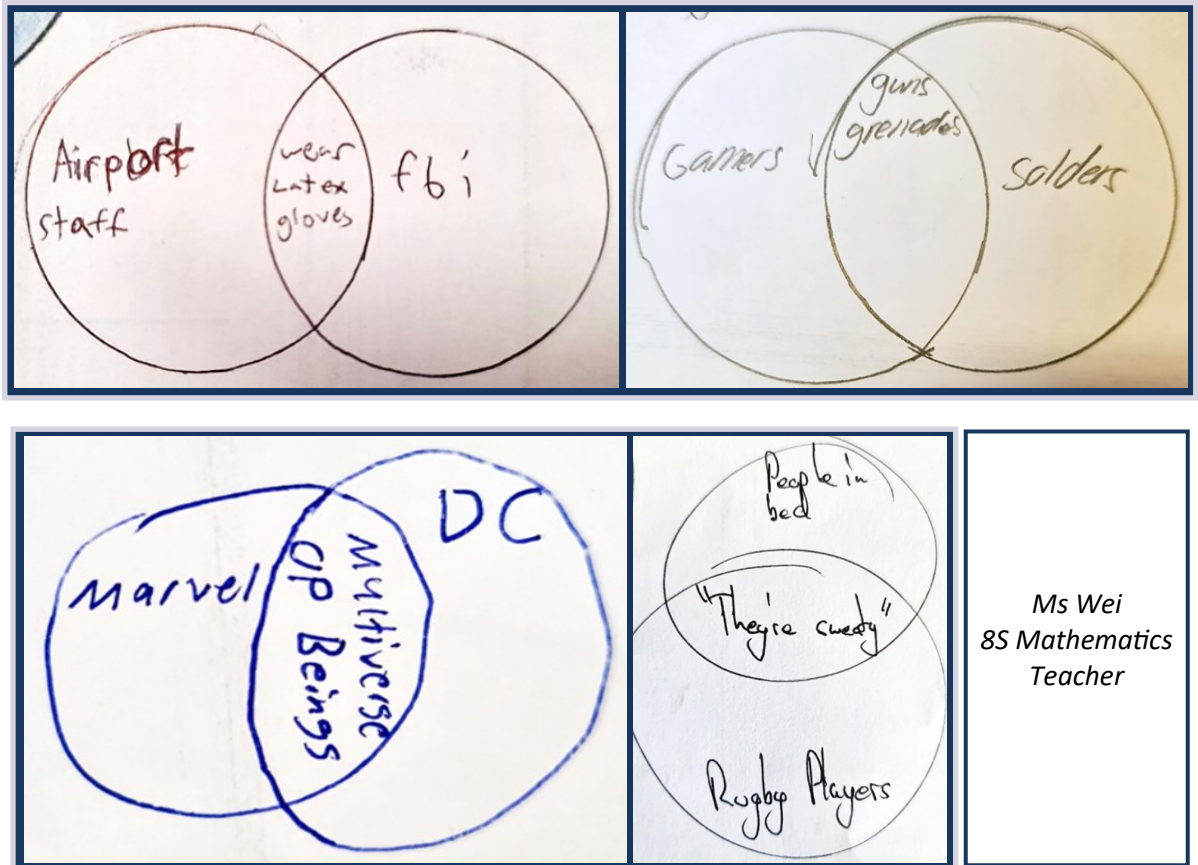 Airport
staff
wear
Latex
gloves
fbi
Gamers
guns
grenades
Solders
Marvel
Multiverse
OP Beings
DC
People in
bed
"They're sweaty"
Rugby Players
Ms Wei
8S Mathematics
Teacher